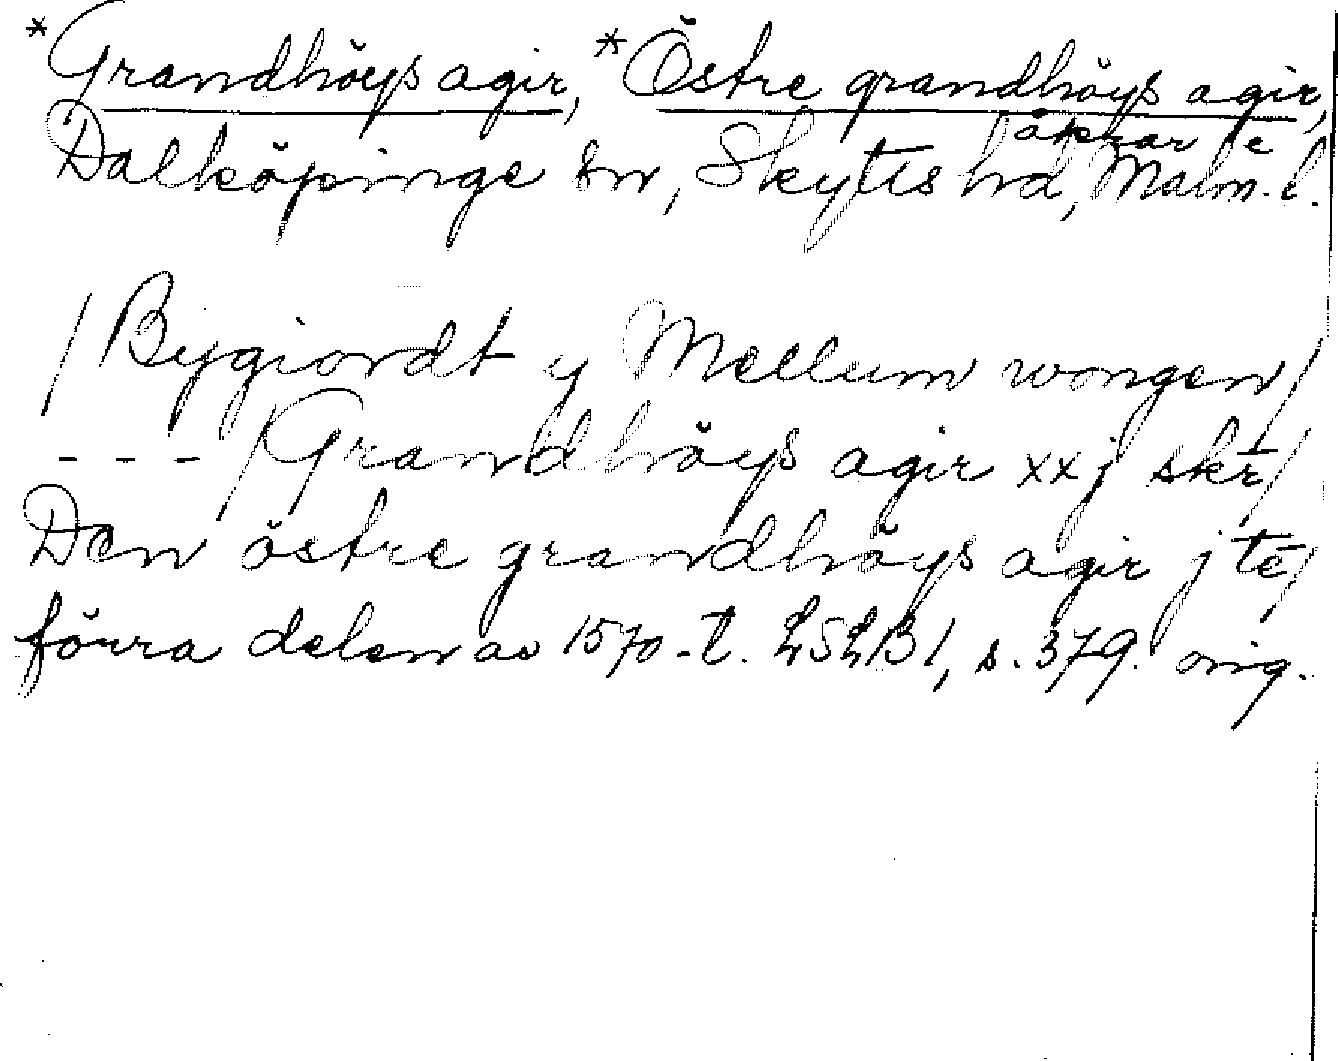 *Grandhöys agir, *Östre grandhöys agir,
åkrar i
Dalköpinge sn, Skytts hd, Malm. l.
/Bygiordt y Mellum wongen/
- - - /Grandhöys agir xxj skr̄/
Den östre grandhöys agir j tē/
förra delen av 1570-t. LSLB1, s. 379. orig.